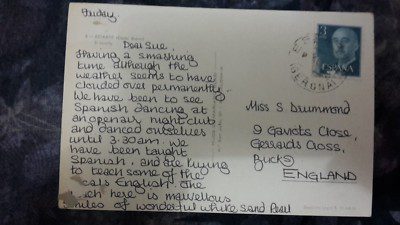 Sunday
Dear Sue,
Having a smashing
time although the
weather seems to have
clouded over permanently.
We have been to see
Spanish dancing at
an openair nightclub
and danced ourselves
until 3.30am. We
have been taught
Spanish, and are trying
to teach some of the
locals English. The
beach here is marvellous
miles of wonderful white sand
3
ESPAÑA
GERONA
Miss S Drummond
9 Gaviots Close,
Gerrards Cross,
Bucks
ENGLAND